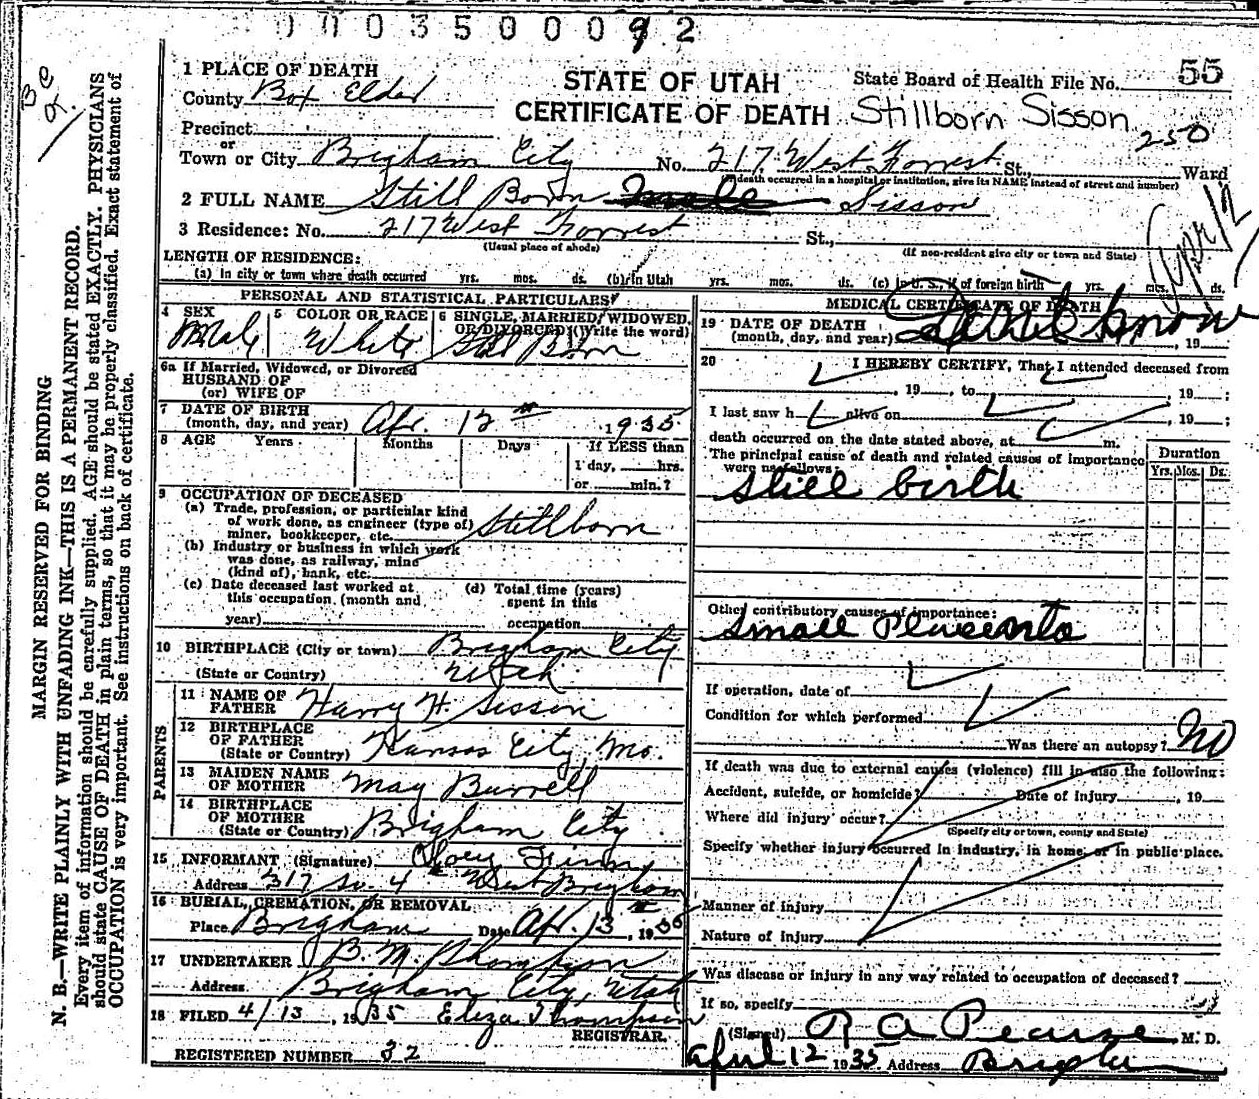 003500092
55
1 PLACE OF DEATH
STATE OF UTAH
State Board of Health File No.
County Box Elder
CERTIFICATE OF DEATH Stillborn Sisson
Precinct
250
or
Town or City Brigham City No. 217 West Forrest St., Ward
(If death occurred in a hospital or institution, give its NAME instead of street and number)
2 FULL NAME Still Born Male Sisson
3 Residence: No. 217 West Forrest St.,
(Usual place of abode) (If non-resident give city or town and State)
Apr 12
LENGTH OF RESIDENCE:
(a) in city or town where death occurred yrs. mos. ds. (b) in Utah yrs. mos. ds. (c) in U. S., if of foreign birth yrs. mos. ds.
PERSONAL AND STATISTICAL PARTICULARS
4 SEX 5 COLOR OR RACE 6 SINGLE, MARRIED, WIDOWED, OR DIVORCED (Write the word)
Male White Still Born
6a If Married, Widowed, or Divorced
HUSBAND OF
(or) WIFE OF
7 DATE OF BIRTH
(month, day, and year) Apr. 12th 1935
8 AGE Years Months Days If LESS than
1 day, hrs.
or min.?
9 OCCUPATION OF DECEASED
(a) Trade, profession, or particular kind
of work done, as engineer (type of)
miner, bookkeeper, etc. Stillborn
(b) Industry or business in which work
was done, as railway, mine
(kind of), bank, etc.
(c) Date deceased last worked at
this occupation (month and
year)
(d) Total time (years)
spent in this
occupation
10 BIRTHPLACE (City or town) Brigham City
(State or Country) Utah
PARENTS
11 NAME OF
FATHER Harry H. Sisson
12 BIRTHPLACE
OF FATHER
(State or Country) Kansas City, Mo.
13 MAIDEN NAME
OF MOTHER May Burrell
14 BIRTHPLACE
OF MOTHER
(State or Country) Brigham City
15 INFORMANT (Signature)
Address 317 So. 4th West Brigham
16 BURIAL, CREMATION, OR REMOVAL
Place Brigham Date Apr. 13th, 1935
17 UNDERTAKER B. M. Thompson
Address Brigham City, Utah
18 FILED 4/13, 1935 Eliza Thompson
REGISTRAR.
REGISTERED NUMBER 32
MEDICAL CERTIFICATE OF DEATH
19 DATE OF DEATH
(month, day, and year) Don't know, 19
20 I HEREBY CERTIFY, That I attended deceased from
, 19 , to , 19 ;
I last saw h alive on , 19 ;
death occurred on the date stated above, at m.
The principal cause of death and related causes of importance
were as follows:
Duration
Yrs. Mos. Ds.
Still birth
Other contributory causes of importance:
Small Placenta
If operation, date of
Condition for which performed
Was there an autopsy? No
If death was due to external causes (violence) fill in also the following:
Accident, suicide, or homicide? Date of injury , 19
Where did injury occur?
(Specify city or town, county and State)
Specify whether injury occurred in industry, in home, or in public place.
Manner of injury
Nature of injury
Was disease or injury in any way related to occupation of deceased?
If so, specify
(Signed) R A Pearse M. D.
April 12 1935 Address
MARGIN RESERVED FOR BINDING
N. B.—WRITE PLAINLY WITH UNFADING INK—THIS IS A PERMANENT RECORD.
Every item of information should be carefully supplied. AGE should be stated EXACTLY. PHYSICIANS
should state CAUSE OF DEATH in plain terms, so that it may be properly classified. Exact statement of
OCCUPATION is very important. See instructions on back of certificate.